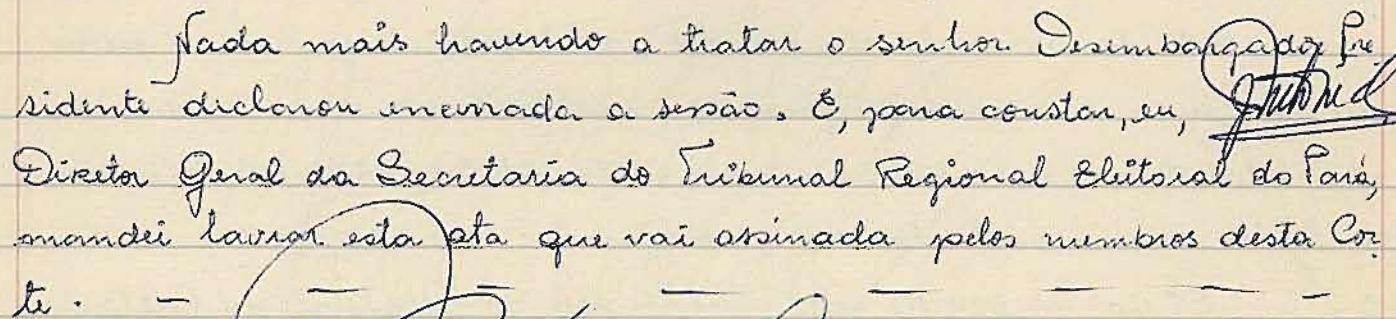 Nada mais havendo a tratar o senhor Desembargador Pre
sidente declarou encerrada a sessão. E, para constar, eu,
Diretor Geral da Secretaria do Tribunal Regional Eleitoral do Pará,
mandei lavrar esta ata que vai assinada pelos membros desta Cor
te. - - - - - - - - - -